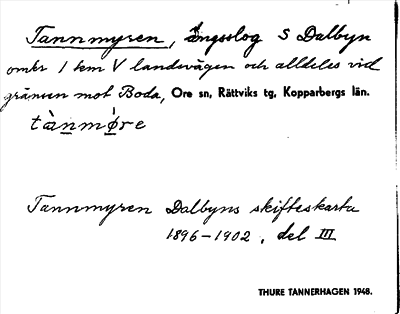 Tannmyren, ängsslog S Dalbyn
omkr 1 km V landsvägen och alldeles vid
gränsen mot Boda, Ore sn, Rättviks tg, Kopparbergs län.
tànmøre
Tannmyren Dalbyns skifteskarta
1896-1902, del III
THURE TANNERHAGEN 1948.